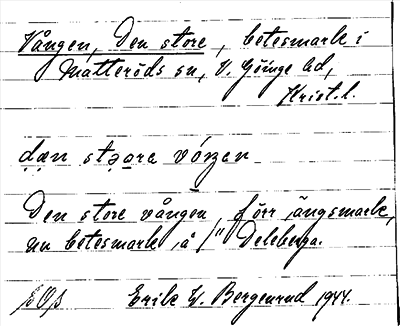 Vången, Den store, betesmark i
Matteröds sn, V. Göinge hd,
Krist.l.
dæn stǫare vóŋen
Den store vången, förr ängsmark,
nu betesmark, å 1" Deleberga.
Erik W. Bergenrud 1944.